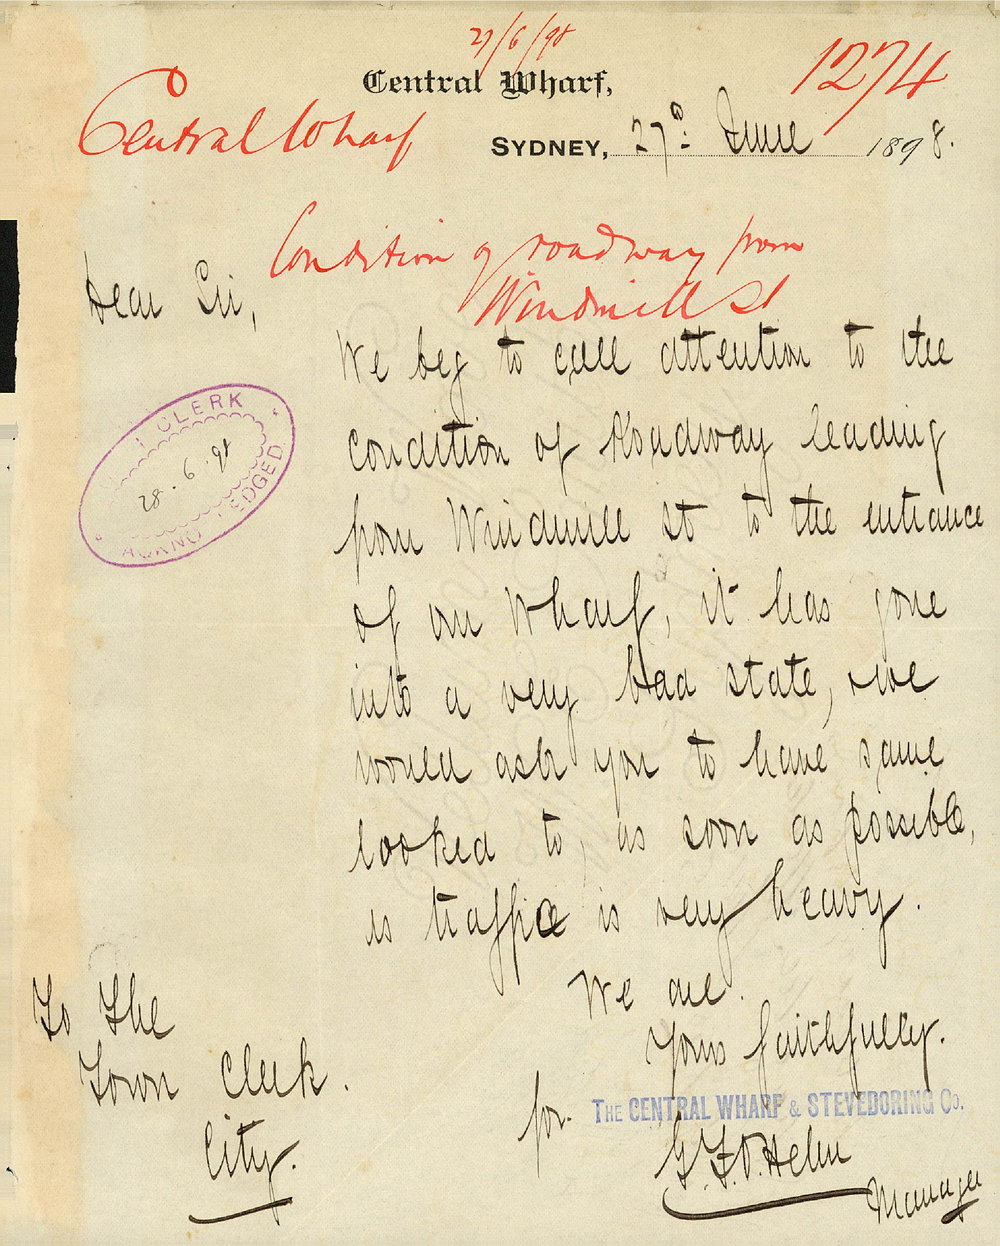 27/6/98
1274
Central Wharf,
Central Wharf
SYDNEY, 27th June 1898.
Condition of roadway from
Windmill St
Dear Sir,
We beg to call attention to the
condition of Roadway leading
from Windmill St to the entrance
of our Wharf, it has gone
into a very bad state, & we
would ask you to have same
looked to, as soon as possible,
as traffic is very heavy.
CLERK
28.6.98
ACKNO EDGED
We are.
Yours faithfully.
for. THE CENTRAL WHARF & STEVEDORING Co.
Manager
To The
Town Clerk.
City.